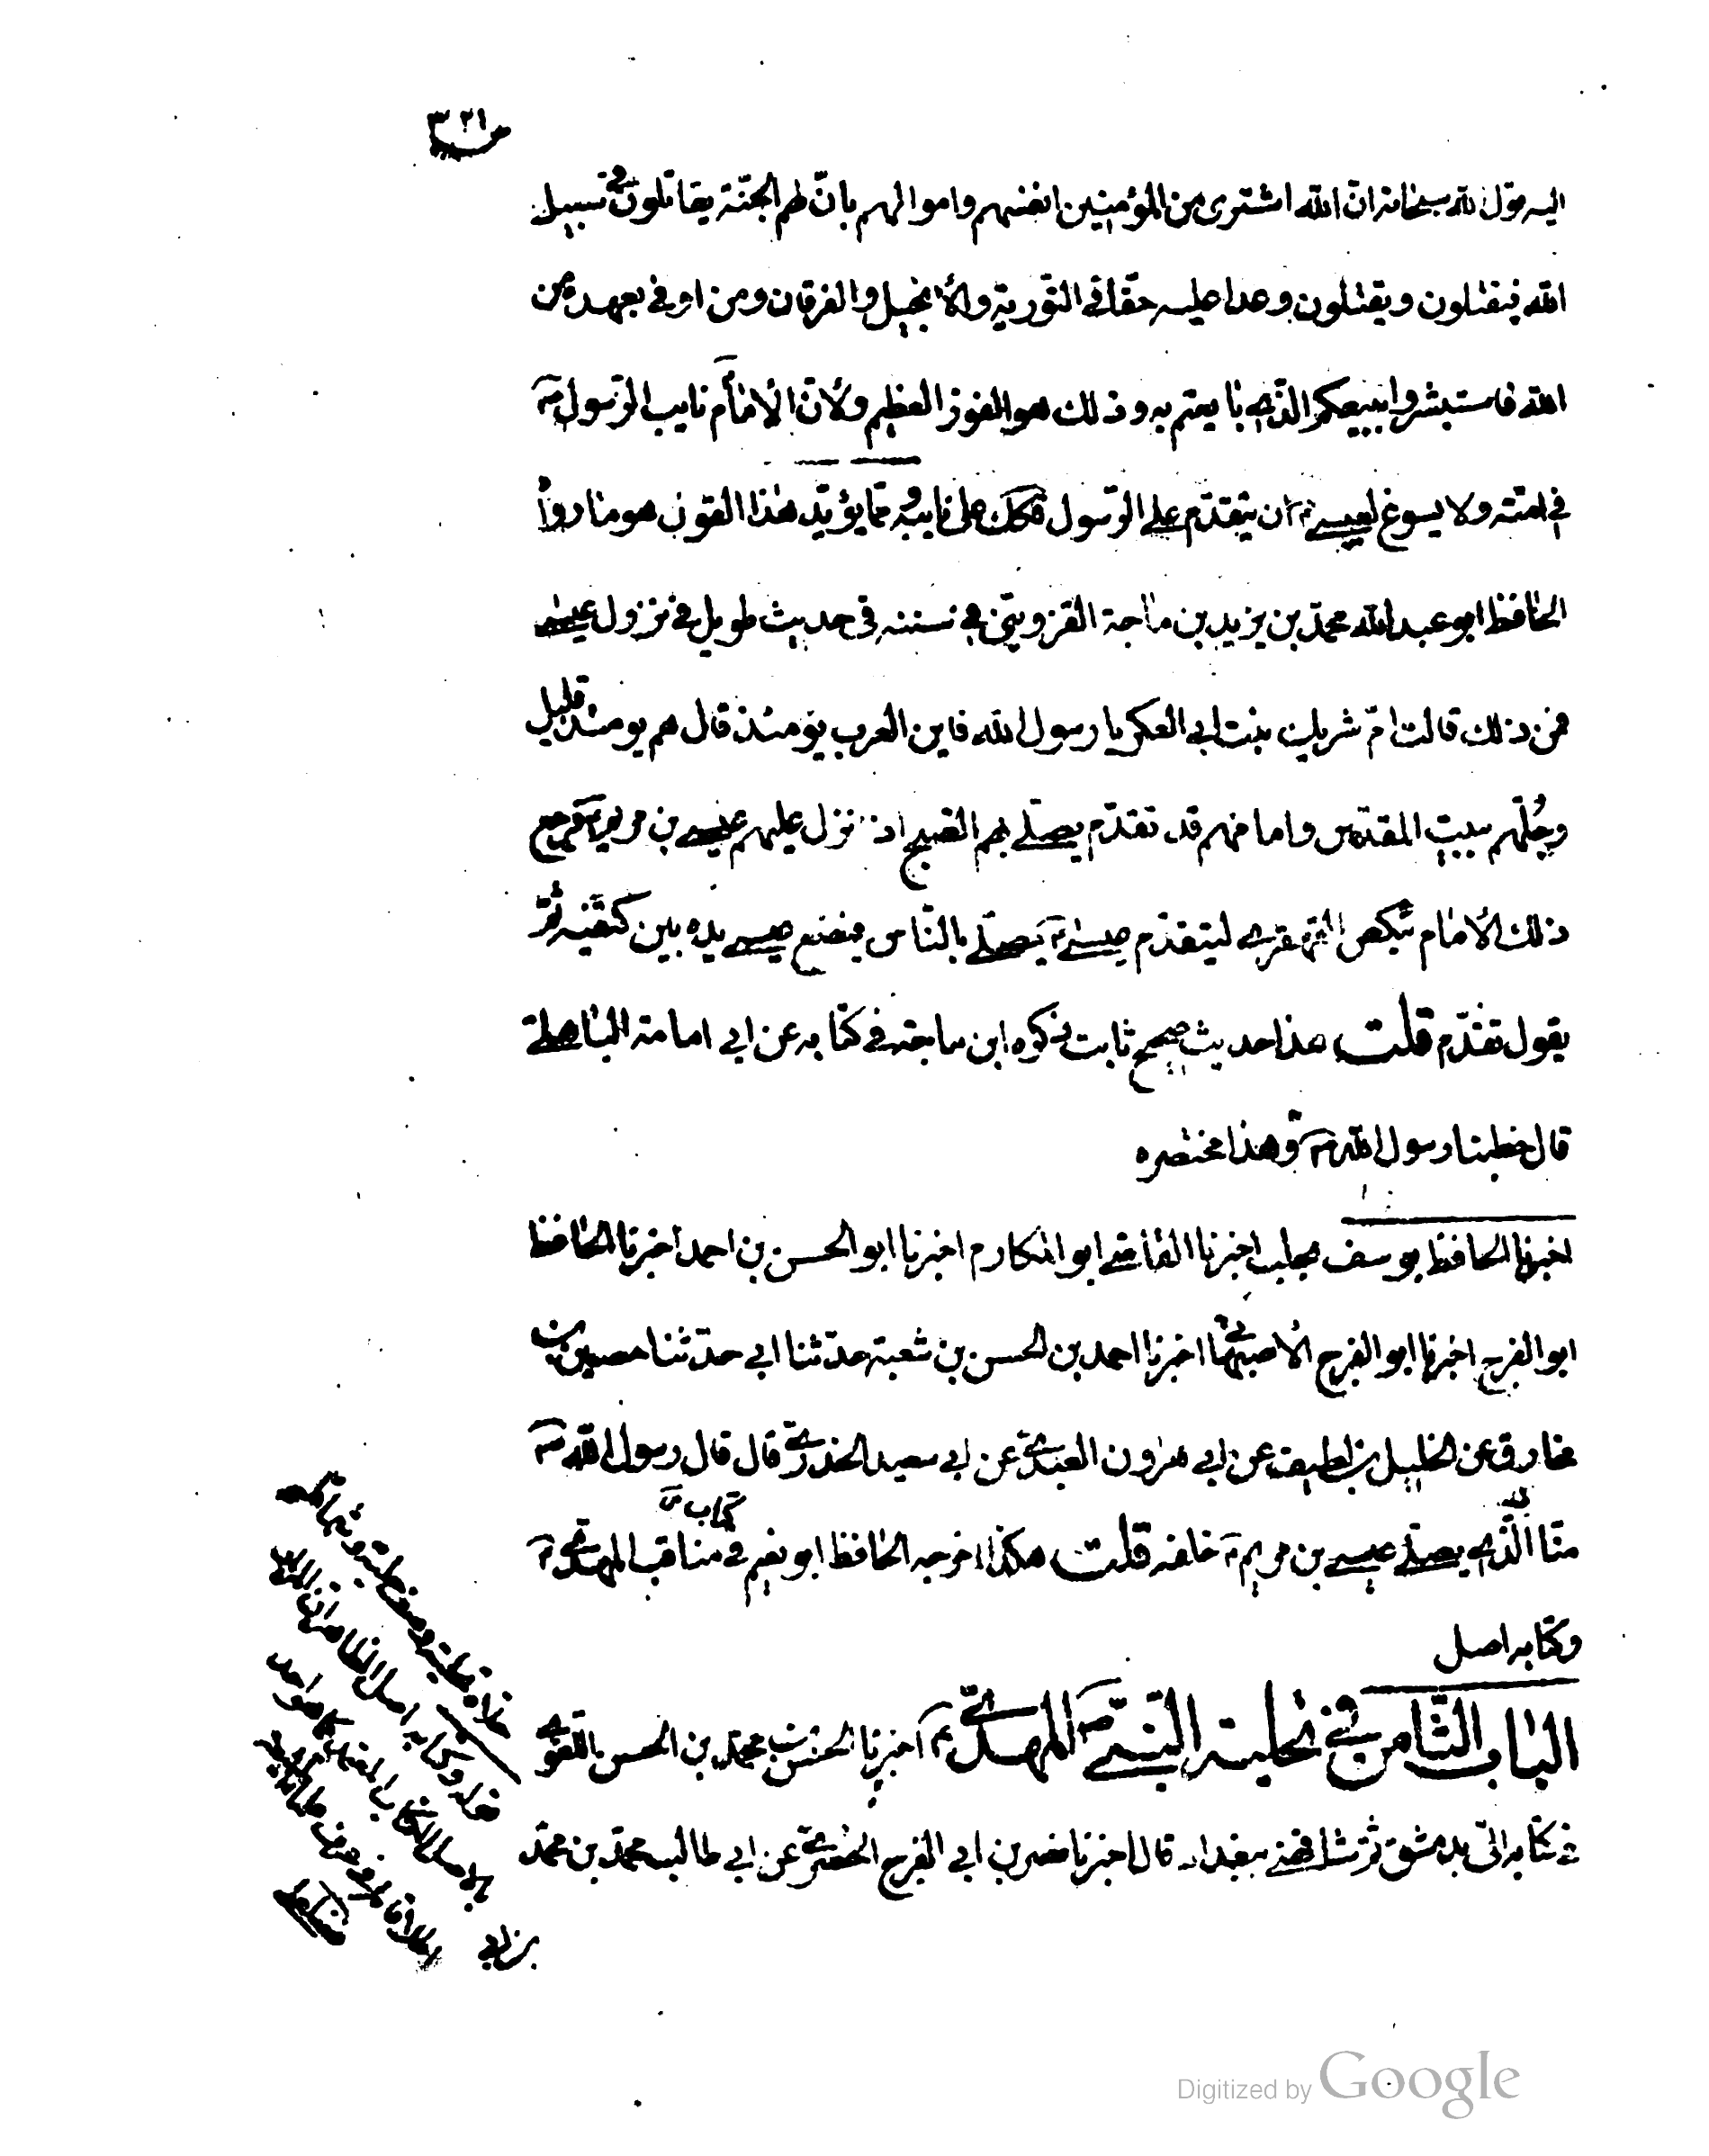 ٣٢١
اليه قول الله سبحانه ان الله اشترى من المؤمنين انفسهم واموالهم بانّ لهم الجنّة يقاتلون في سبيل
الله فيقتلون ويقتلون وعدا عليه حقا في التورية والانجيل والفرقان ومن اوفى بعهده من
الله فاستبشروا ببيعكم الذي بايعتم به وذلك هو الفوز العظيم ولانّ الامام نايب الرّسول ص
في امته ولا يسوغ لعيسى ع ان يتقدّم على الرّسول فكك على نايبه وممّا يؤيّد هذا القول هو ما رواه
الحافظ ابو عبد الله محمّد بن يزيد بن ماجة القزويني في سننه في حديث طويل في نزول عيسى
فمن ذلك قالت امّ شريك بنت ابي العكر يا رسول الله فاين العرب يومئذ قال هم يومئذ قليل
وجُلّهم ببيت المقدّس وامامهم قد تقدّم يصلّي بهم الصّبح اذ نزل عليهم عيسى بن مريم ع فرجع
ذلك الامام ينكص القهقرى ليتقدّم عيسى ع يصلّي بالنّاس فيضع عيسى يده بين كتفيه ثمّ
يقول تقدّم قلت هذا حديث صحيح ثابت ذكره ابن ماجة في كتابه عن ابي امامة الباهلي
قال خطبنا رسول الله ص وهذا مختصره
اخبرنا الحافظ يوسف بحلب اخبرنا القاضي ابو المكارم اخبرنا ابو الحسن بن احمد اخبرنا الحافظ
ابو الفرج اخبرنا ابو الفرج الاصبهاني اخبرنا احمد بن الحسن بن شعبة حدّثنا ابي حدّثنا حصين بن
مخارق عن الخليل بن لطيف عن ابي هرون العبدي عن ابي سعيد الخدري قال قال رسول الله ص
منّا الّذي يصلّي عيسى بن مريم ع خلفه قلت هكذا اخرجه الحافظ ابو نعيم في كتاب مناقب المهدي ع
وكتابه اصل
الباب الثّامن في تحلية النّبيّ ص المهديّ ع اخبرنا الحسن بن محمّد بن الحسن اللغوي
في كتابه اليّ بدمشق ثم شافهني ببغداد قال اخبرنا نصر بن ابي الفرج الحصري عن ابي طالب محمّد بن محمّد
بن ابي
Digitized by Google